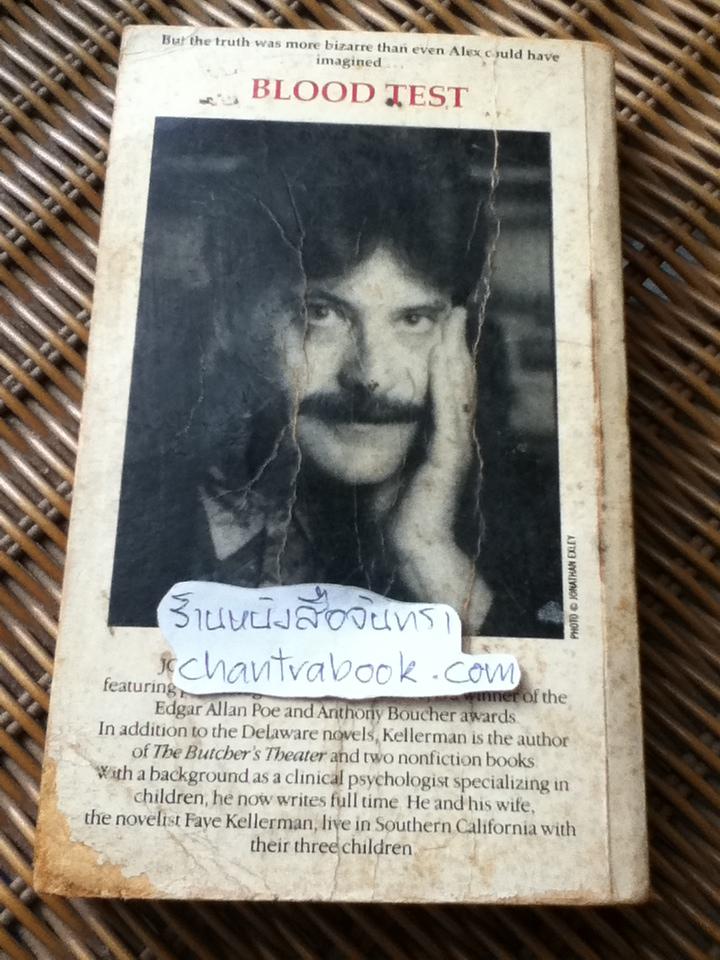 But the truth was more bizarre than even Alex could have
imagined . . .
BLOOD TEST
PHOTO © JONATHAN EXLEY
ร้านหนังสือจันทรา
chantrabook.com
featuring winner of the
Edgar Allan Poe and Anthony Boucher awards.
In addition to the Delaware novels, Kellerman is the author
of The Butcher's Theater and two nonfiction books.
With a background as a clinical psychologist specializing in
children, he now writes full time. He and his wife,
the novelist Faye Kellerman, live in Southern California with
their three children.